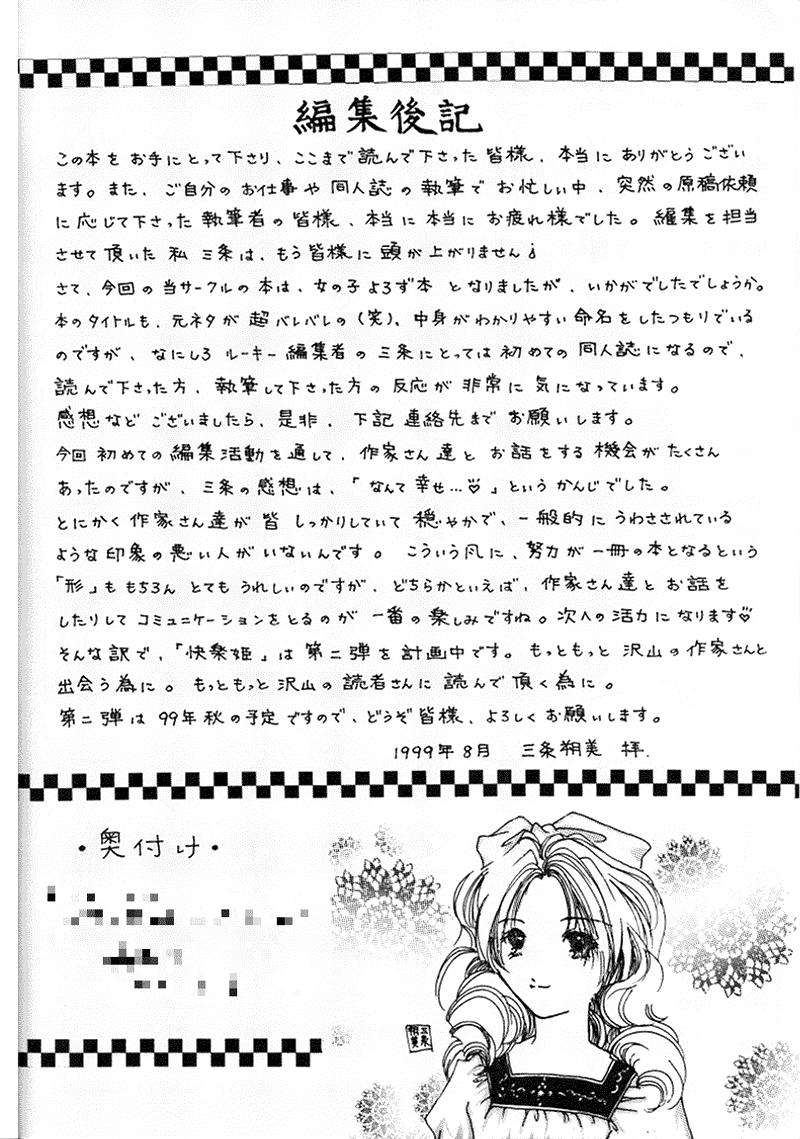 編集後記
この本を お手にとって下さり、ここまで 読んで下さった 皆様、本当に ありがとうござい
ます。また、ご自分の お仕事や 同人誌の 執筆で お忙しい中、突然の原稿依頼
に応じて下さった 執筆者の皆様、本当に本当に お疲れ様でした。編集を担当
させて頂いた 私 三条は、もう皆様に 頭が上がりません♩
さて、今回の当サークルの本は、女の子よろず本 となりましたが、いかがでしたでしょうか。
本のタイトルも、元ネタが 超バレバレの(笑)、中身がわかりやすい命名をしたつもりでいる
のですが、なにしろ ルーキー編集者の三条にとっては初めての同人誌になるので、
読んで下さった方、執筆して下さった方の反応が 非常に 気になっています。
感想など ございましたら、是非、下記連絡先まで お願いします。
今回 初めての 編集活動を通して、作家さん達と お話をする機会がたくさん
あったのですが、三条の感想は、「なんて幸せ…♡」という かんじでした。
とにかく 作家さん達が皆 しっかりしていて 穏やかで、一般的に うわさされている
ような 印象の悪い人が いないんです。 こういう風に、努力が一冊の本となるという
「形」も もちろん とても うれしいのですが、どちらかといえば、作家さん達と お話を
したりして コミュニケーションをとるのが 一番の楽しみですね。次への活力になります♡
そんな訳で、「快楽姫」は 第二弾を計画中です。もっともっと 沢山の作家さんと
出会う為に。もっともっと沢山の読者さんに 読んで頂く為に。
第二弾は 99年秋の予定ですので、どうぞ皆様、よろしくお願いします。
1999年8月 三条朔美 拝.
・奥付け・
三条
朔美